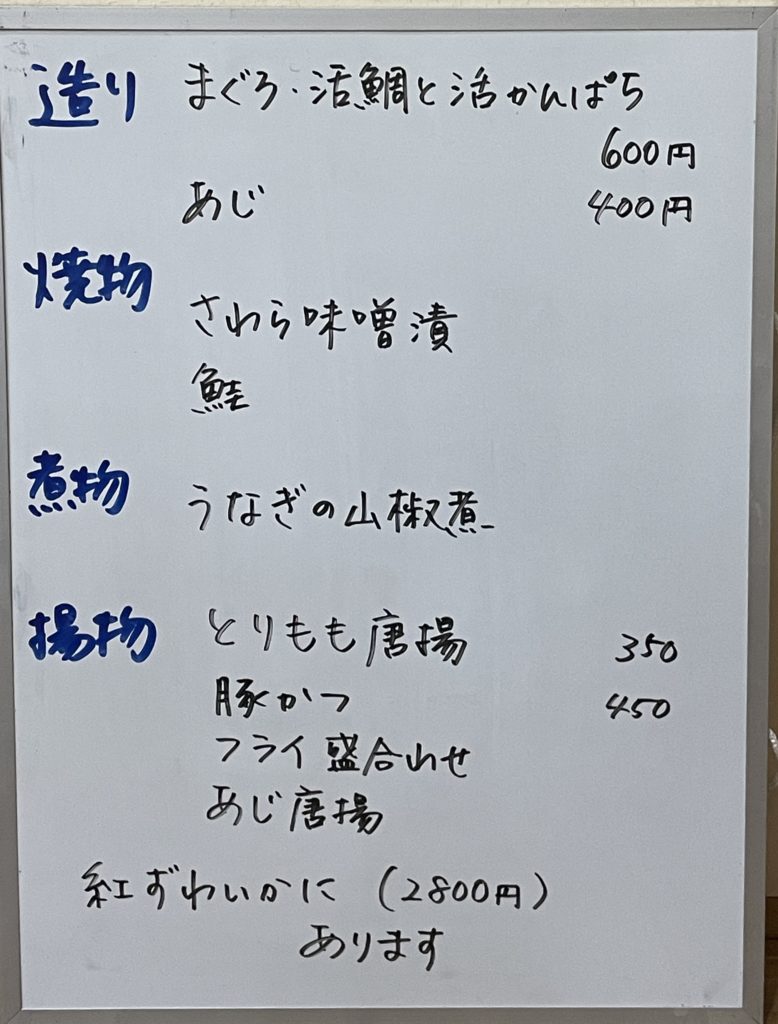 造り まぐろ・活鯛と活かんぱち
600円
あじ 400円
焼物
さわら味噌漬
鮭
煮物 うなぎの山椒煮
揚物 とりもも唐揚 350
豚かつ 450
フライ盛合わせ
あじ唐揚
紅ずわいかに (2800円)
あります